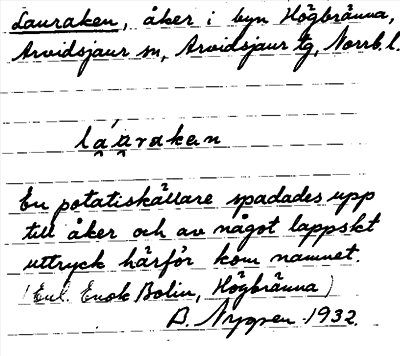 Lauraken, åker i byn Högbränna,
Arvidsjaur sn, Arvidsjaur tg, Norrb. l.
la̯u̯raken
En potatiskällare spadades upp
till åker och av något lappskt
uttryck härför kom namnet.
(Enl. Enok Bolin, Högbränna)
B. Nygren 1932.